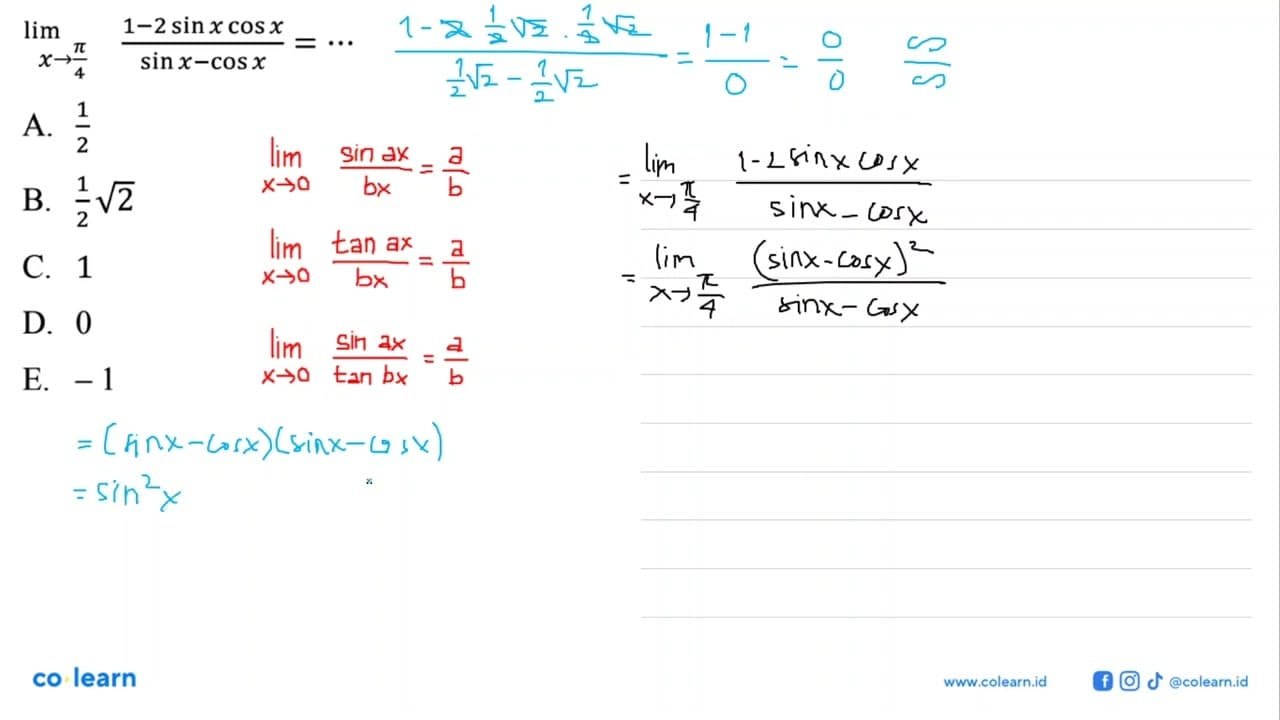 lim x→π/4 (1−2 sin x cos x)/(sin x−cos x) = ⋯
(1 - 2 1/2 √2 . 1/2 √2)/(1/2 √2 - 1/2 √2) = (1-1)/0 = 0/0 ∞/∞
A. 1/2
B. 1/2 √2
C. 1
D. 0
E. −1
lim x→0 sin ax/bx = a/b
lim x→0 tan ax/bx = a/b
lim x→0 sin ax/tan bx = a/b
= lim x→π/4 (1-2 sinx cosx)/(sinx - cosx)
= lim x→π/4 (sinx - cosx)²/(sinx - cosx)
= (sinx - cosx)(sinx - cosx)
= sin²x
co learn
www.colearn.id
@colearn.id